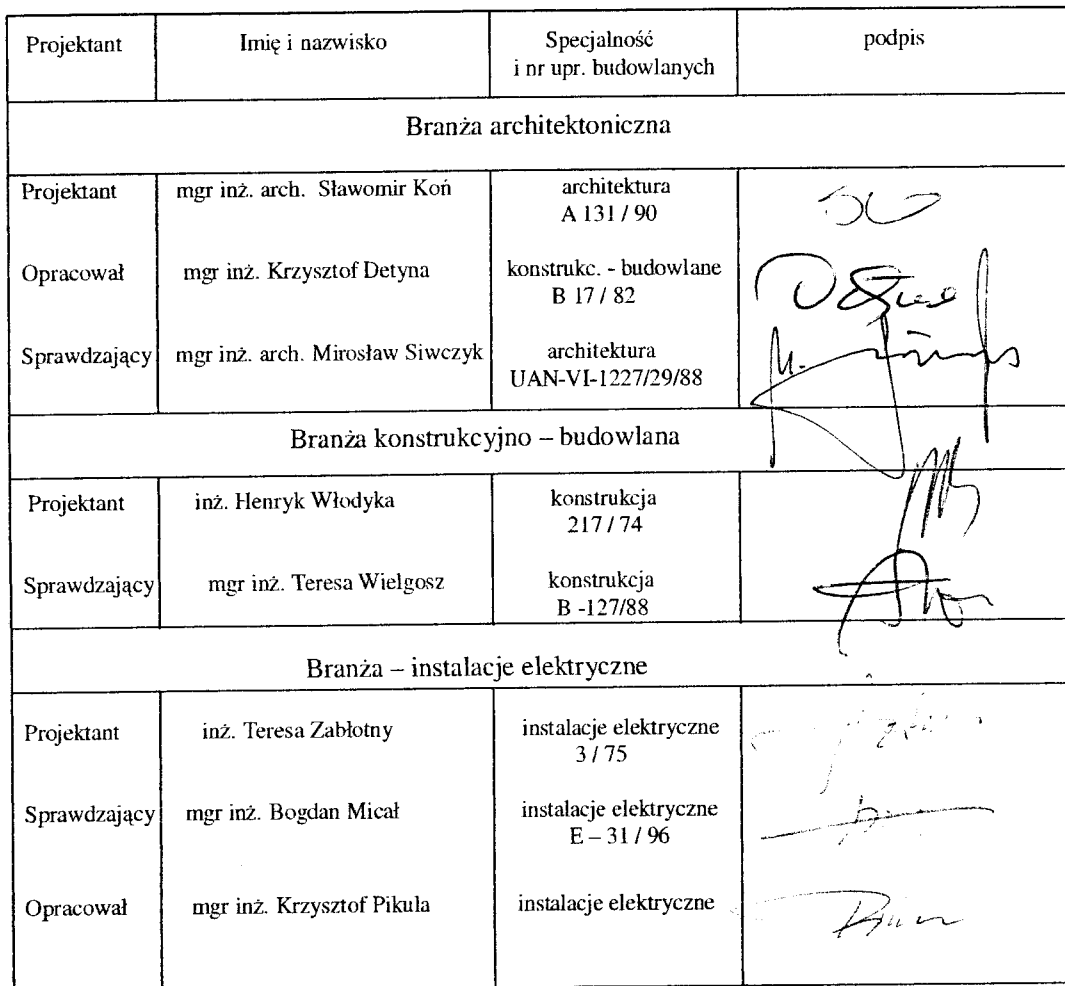 Projektant Imię i nazwisko Specjalność podpis
i nr upr. budowlanych
Branża architektoniczna
Projektant mgr inż. arch. Sławomir Koń architektura
A 131 / 90
Opracował mgr inż. Krzysztof Detyna konstrukc. - budowlane
B 17 / 82
Sprawdzający mgr inż. arch. Mirosław Siwczyk architektura
UAN-VI-1227/29/88
Branża konstrukcyjno – budowlana
Projektant inż. Henryk Włodyka konstrukcja
217 / 74
Sprawdzający mgr inż. Teresa Wielgosz konstrukcja
B -127/88
Branża – instalacje elektryczne
Projektant inż. Teresa Zabłotny instalacje elektryczne
3 / 75
Sprawdzający mgr inż. Bogdan Micał instalacje elektryczne
E – 31 / 96
Opracował mgr inż. Krzysztof Pikula instalacje elektryczne